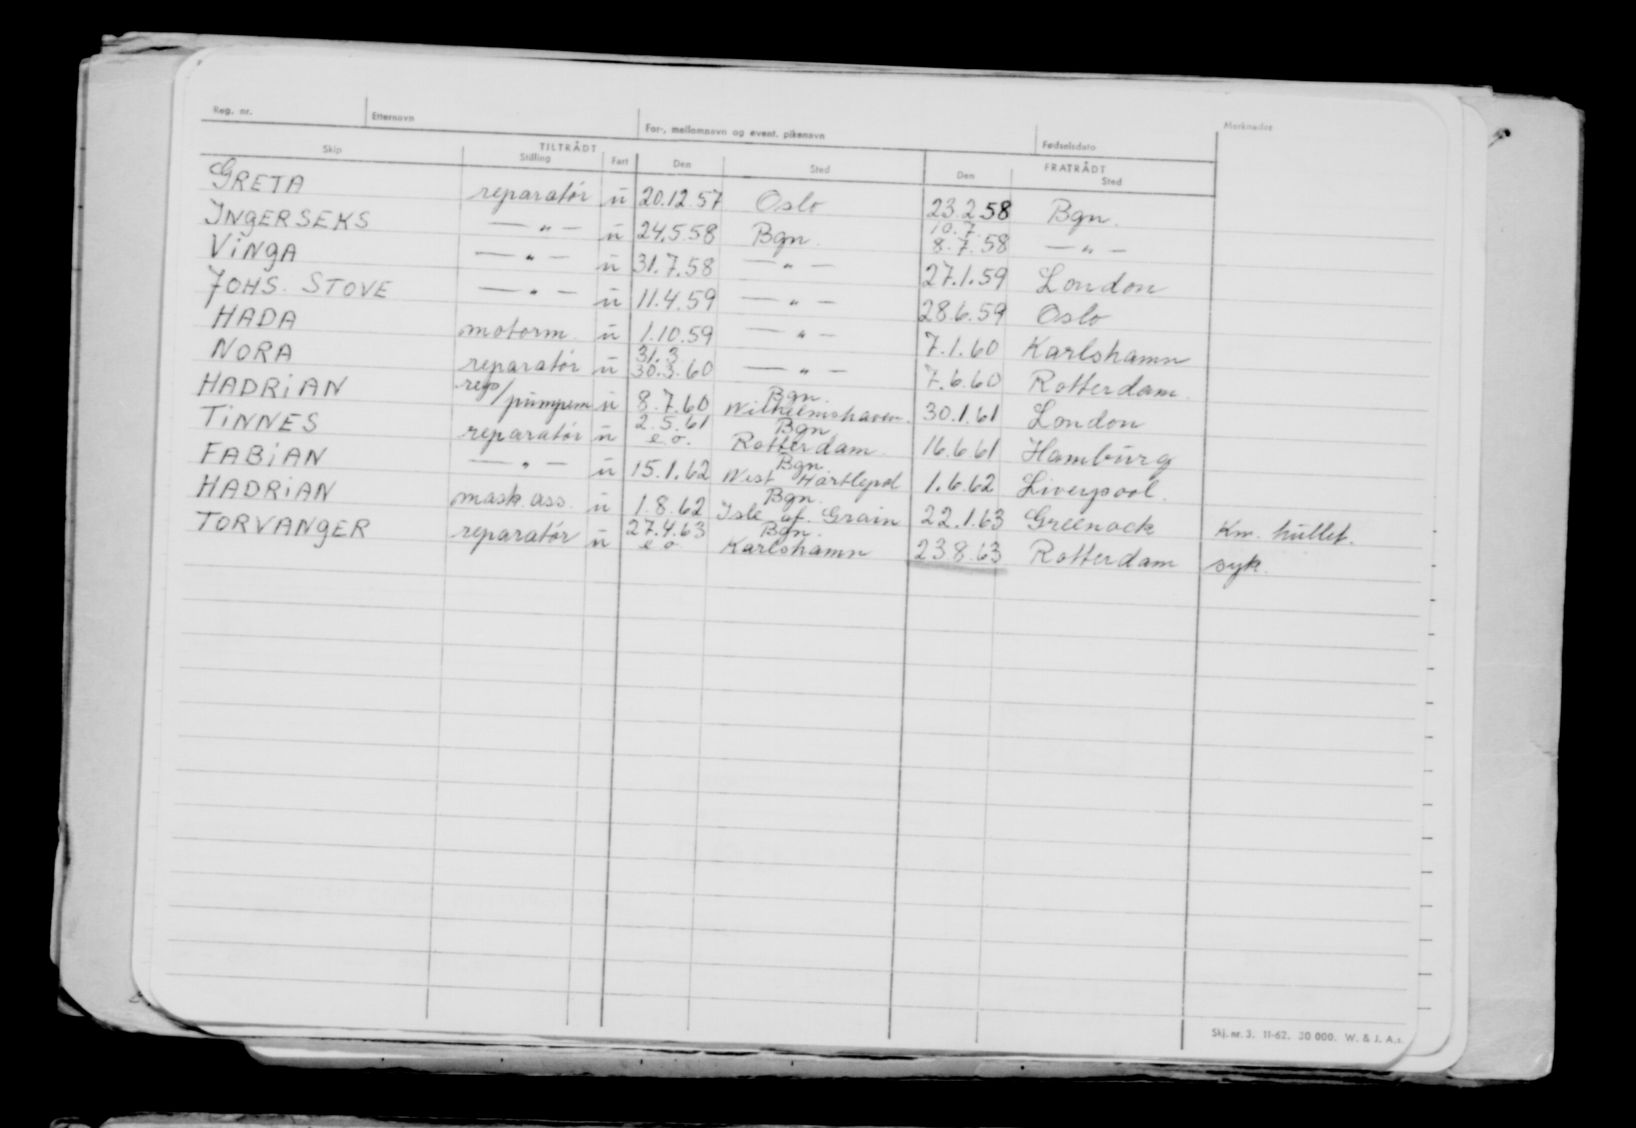 Reg. nr. Etternavn For-, mellomnavn og event. pikenavn Fødselsdato Merknader
TILTRÅDT FRATRÅDT
Skip Stilling Fart Den Sted Den Sted
GRETA reparatør u 20.12.57 Oslo 23.2.58 Bgn.
INGERSEKS — " — u 24.5.58 Bgn. 10.7. 8.7.58 — " —
VINGA — " — u 31.7.58 — " — 27.1.59 London
JOHS. STOVE — " — u 11.4.59 — " — 28.6.59 Oslo
HADA motorm. u 1.10.59 — " — 7.1.60 Karlshamn
NORA reparatør u 31.3. 30.3.60 — " — 7.6.60 Rotterdam.
HADRIAN rep/pumpem u 8.7.60 Bgn. Wilhelmshaven. 30.1.61 London
TINNES reparatør u 2.5.61 e.o. Bgn. Rotterdam. 16.6.61 Hamburg
FABIAN — " — u 15.1.62 Bgn. West Hartlepol 1.6.62 Liverpool.
HADRIAN mask.ass. u 1.8.62 Bgn. Isle of. Grain 22.1.63 Greenock Kn. hullet.
TORVANGER reparatør u 27.4.63 e.o. Bgn. Karlshamn 23.8.63 Rotterdam syk.
Skj. nr. 3. 11-62. 30 000. W. & J. A.s.